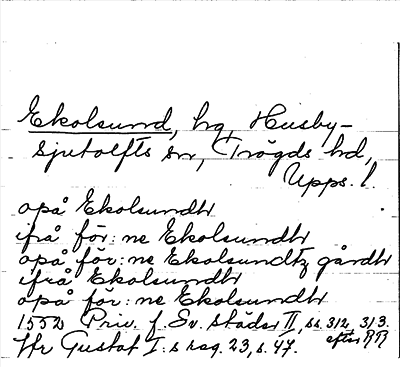 Ekolsund, hg, Husby-
Sjutolfts sn, Trögds hd,
Upps. l.
opå Ekolsundh
ifrå för: ne Ekolsundh
opå för: ne Ekolsundtz gårdh
ifrå Ekolsundh
opå för: ne Ekolsundh
1552 Priv. f. Sv. städer II, ss. 312, 313.
Hr Gustaf I: s reg. 23, s. 47. efter RR